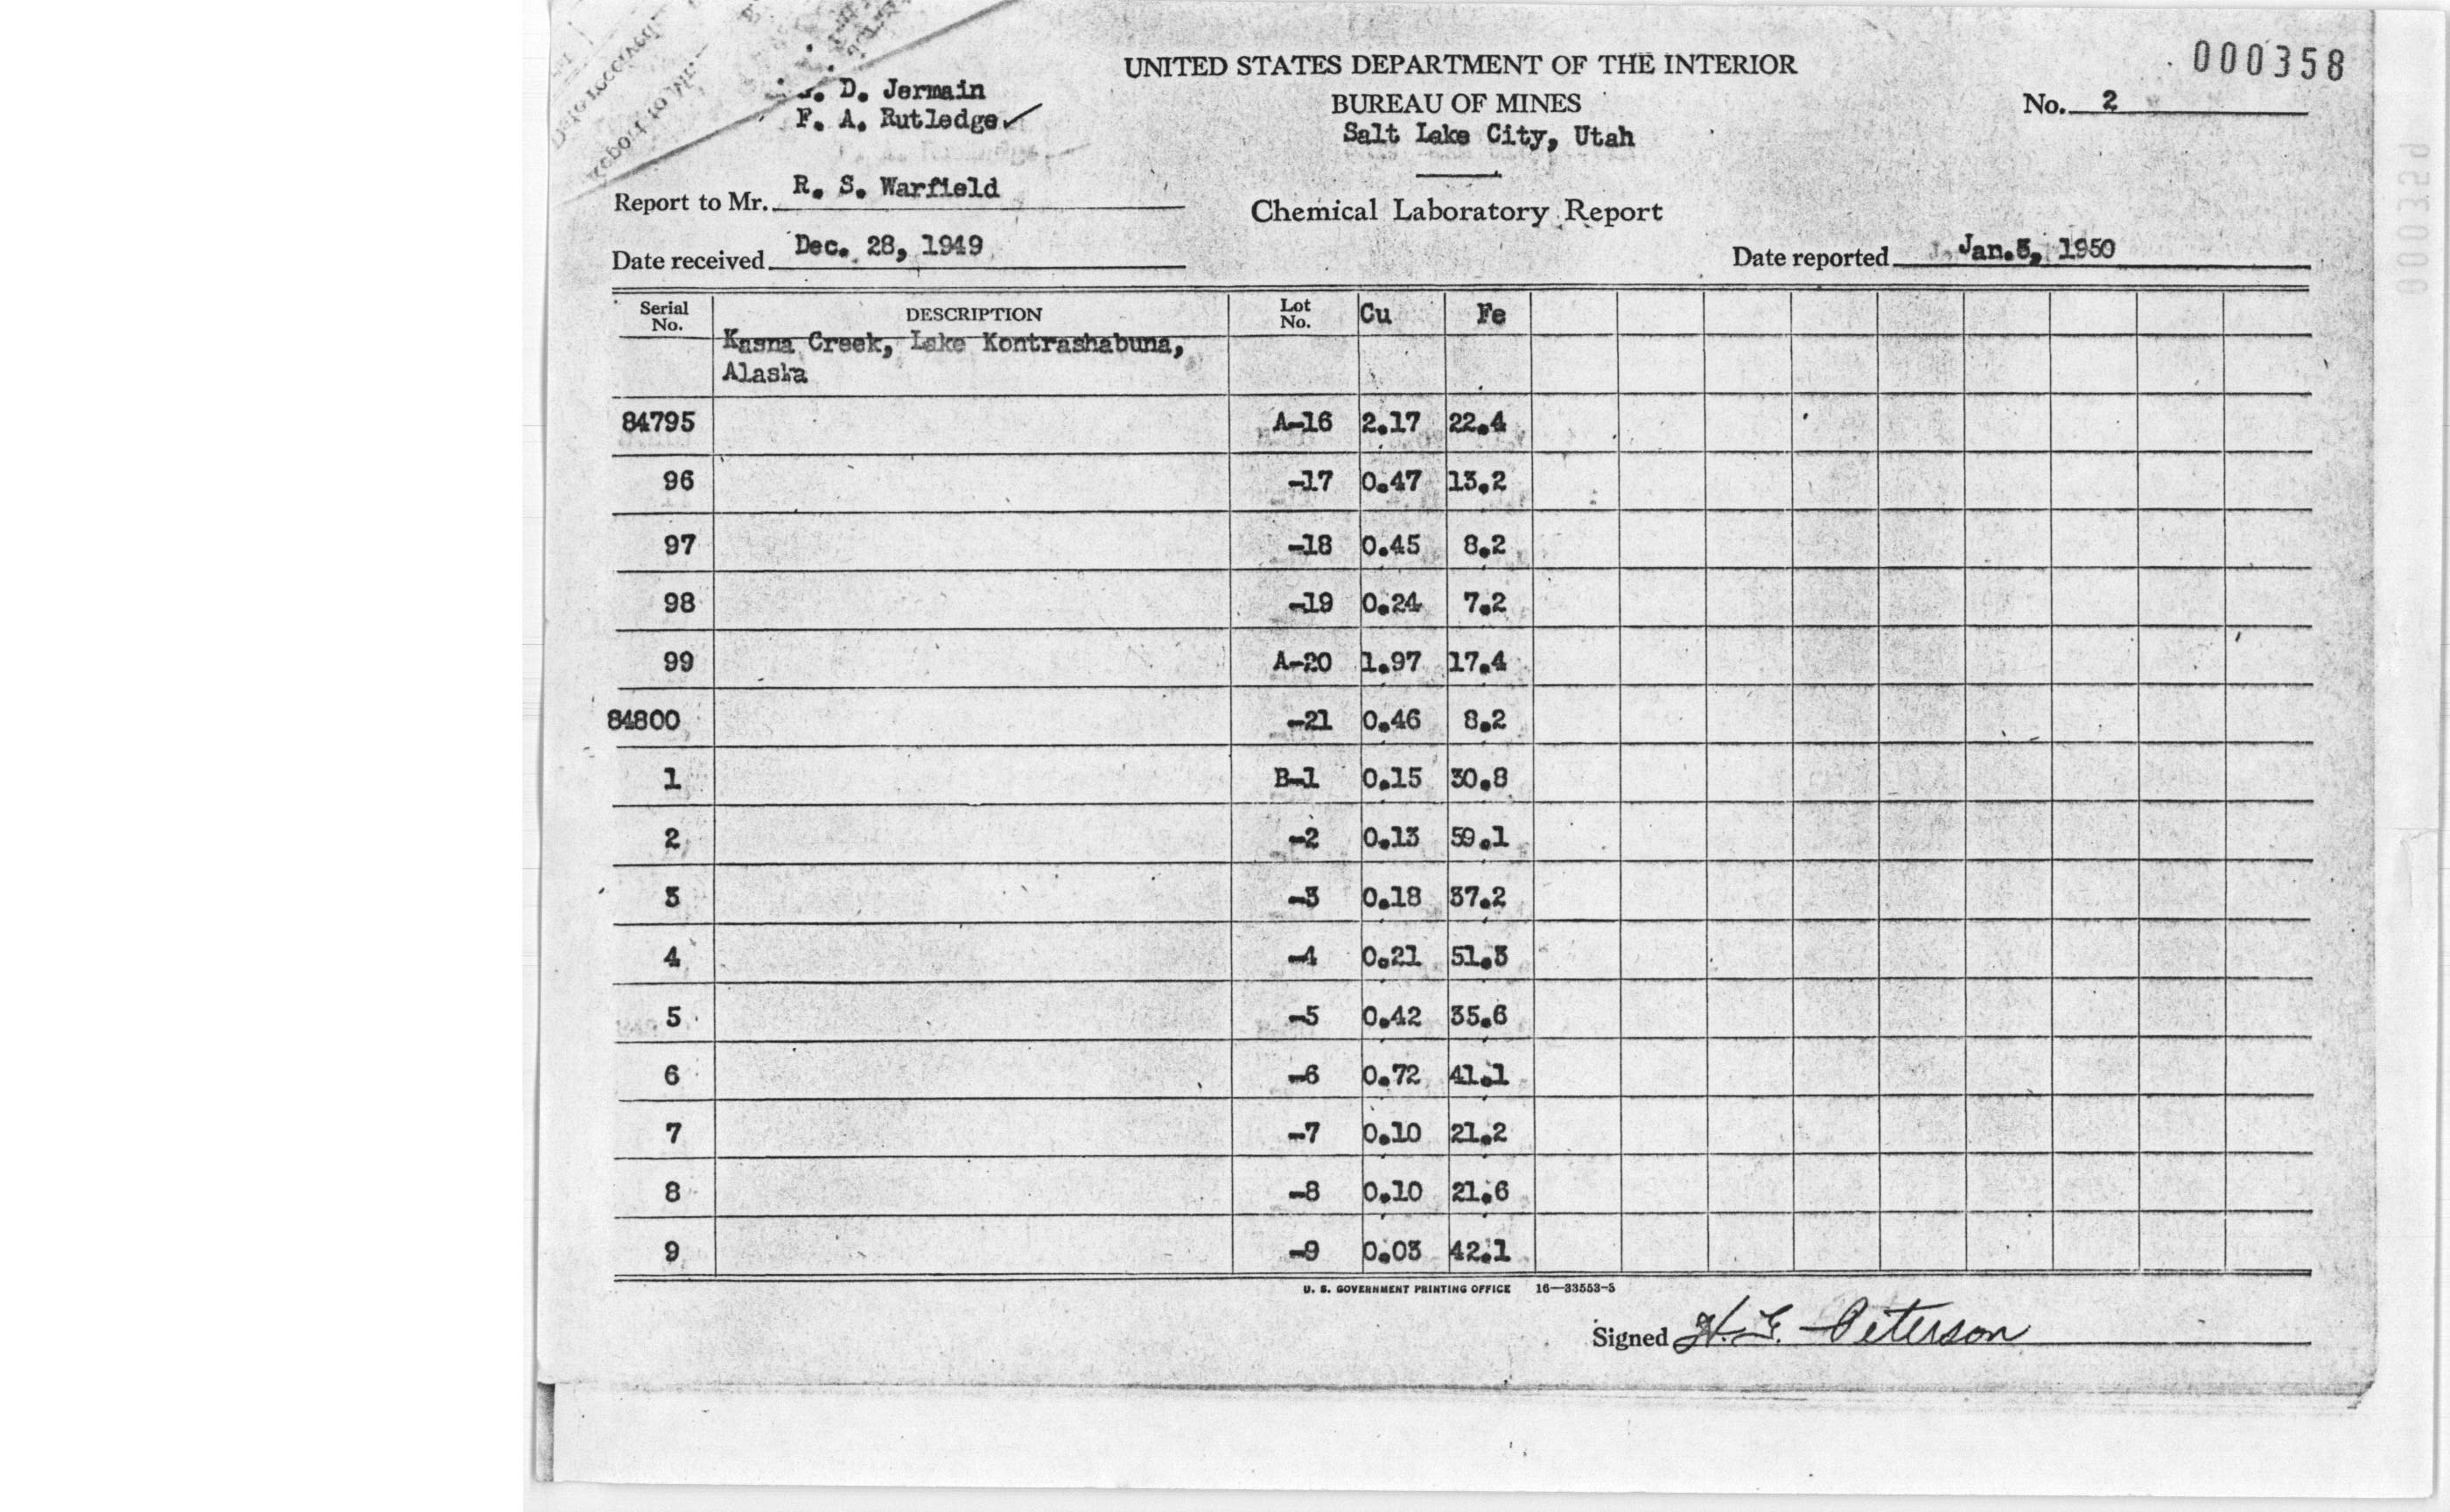 000358
UNITED STATES DEPARTMENT OF THE INTERIOR
BUREAU OF MINES
Salt Lake City, Utah
No. 2
D. Jermain
F. A. Rutledge ✓
Report to Mr. R. S. Warfield
Chemical Laboratory Report
Date received Dec. 28, 1949
Date reported Jan. 3, 1950
Serial No. DESCRIPTION Lot No. Cu Fe
Kasna Creek, Lake Kontrashabuna,
Alaska
84795 A-16 2.17 22.4
96 -17 0.47 13.2
97 -18 0.45 8.2
98 -19 0.24 7.2
99 A-20 1.97 17.4
84800 -21 0.46 8.2
1 B-1 0.15 30.8
2 -2 0.13 59.1
3 -3 0.18 37.2
4 -4 0.21 51.3
5 -5 0.42 35.6
6 -6 0.72 41.1
7 -7 0.10 21.2
8 -8 0.10 21.6
9 -9 0.03 42.1
U. S. GOVERNMENT PRINTING OFFICE 16—33553-5
Signed H. G. Peterson